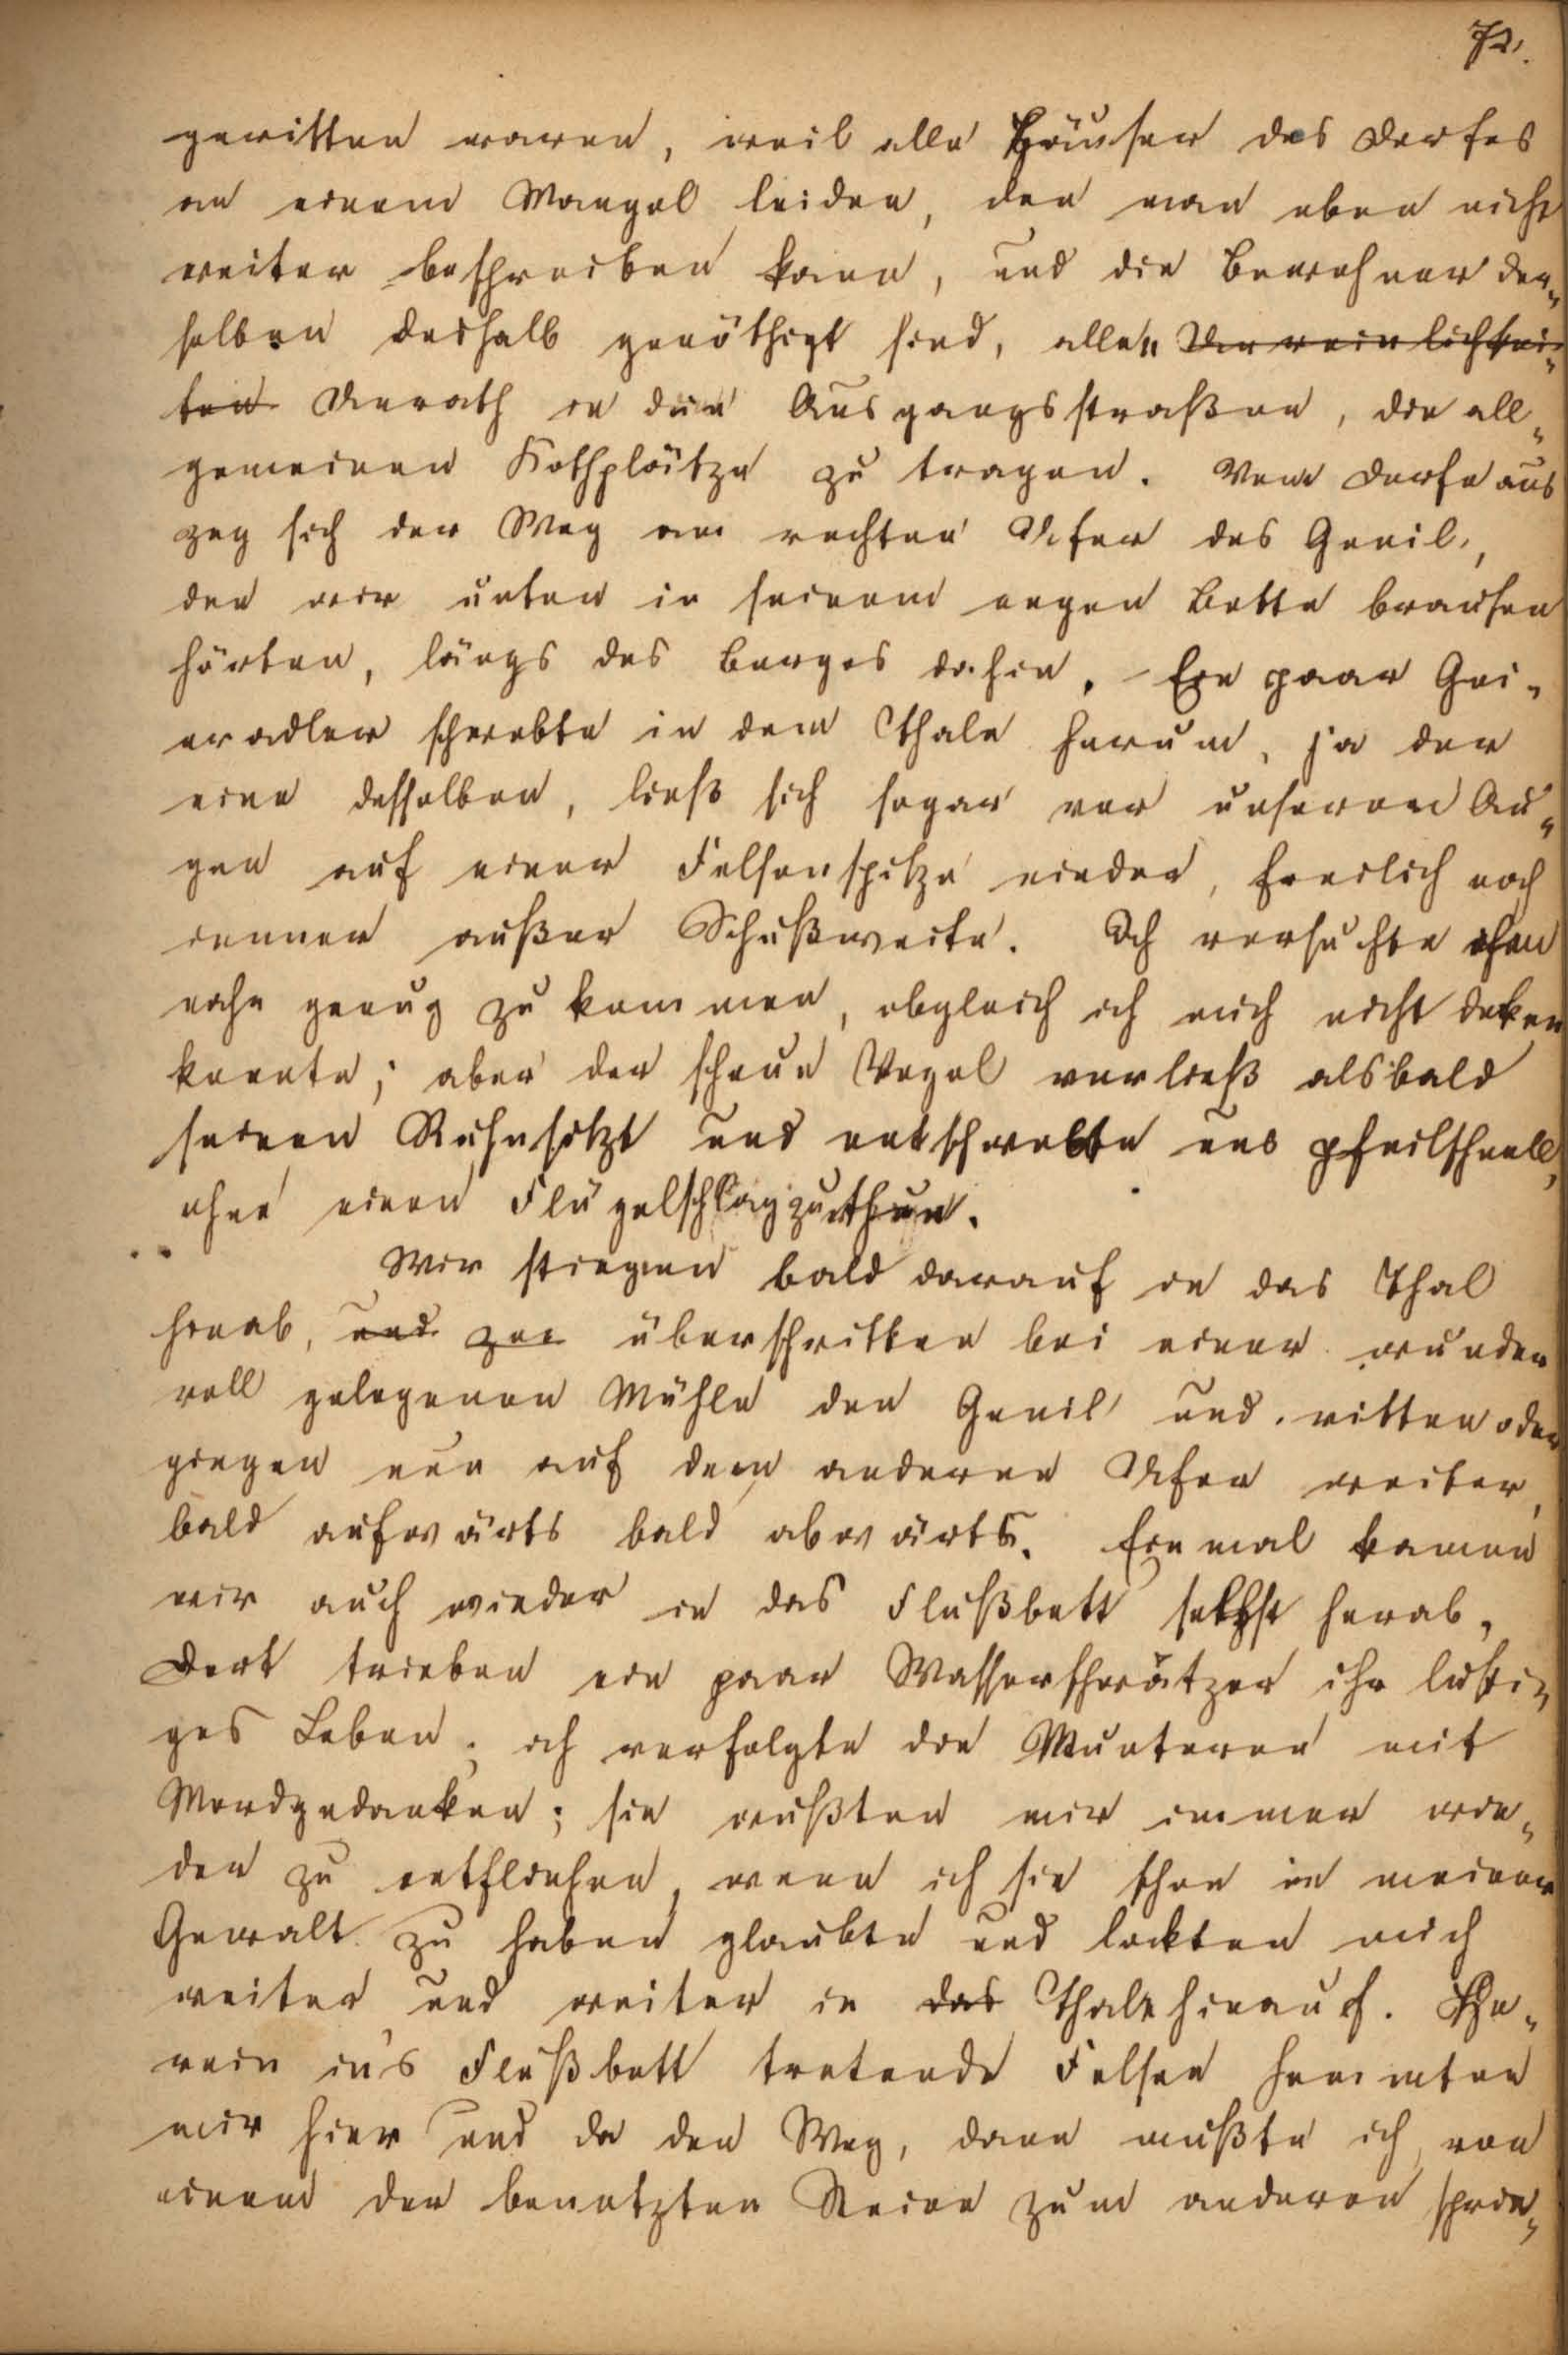 72.
geritten waren, weil alle Häuser des Dorfes
an einem Mangel leiden, den man eben nicht
weiter beschreiben kann, und die Bewohner der-
selben deshalb genöthigt sind, allen Unreinlichkei-
ten Unrath in die Ausgangsstraßen, die all-
gemeinen Kothplätze zu tragen. Vom Dorfe aus
zog sich der Weg am rechten Ufer des Genil,
den wir unten in seinem engen Bette brausen
hörten, längs des Berges dahin. – Ein paar Gei-
eradler schwebte in dem Thale herum, ja der
eine desselben, ließ sich sogar vor unseren Au-
gen auf einer Felsenspitze nieder, freilich noch
immer außer Schußweite. Ich versuchte ihm
nahe genug zu kommen, obgleich ich mich nicht deken
konnte; aber der scheue Vogel verließ alsbald
seinen Ruhesitzt und entschwebte uns pfeilschnell,
ohne einen Flügelschlag zu thun.
Wir stiegen bald darauf in das Thal
hinab, und zu überschritten bei einer wunder
voll gelegenen Mühle den Genil und ritten oder
giegen nun auf dem anderen Ufer weiter,
bald aufwärts bald abwärts. Einmal kamen
wir auch wieder in das Flußbett selbst herab,
Dort trieben ein paar Wasserschwätzer ihr lusti-
ges Leben; ich verfolgte die Munteren mit
Mordgedanken; sie wußten mir immer wie-
der zu entfliehen, wenn ich sie schon in meiner
Gewalt zu haben glaubte und lockten mich
weiter und weiter in das Thale hinauf. He-
rein in's Flußbett tretende Felsen hemmten
mir hier und da den Weg, dann mußte ich von
einem der benetzten Steine zum anderen sprin-